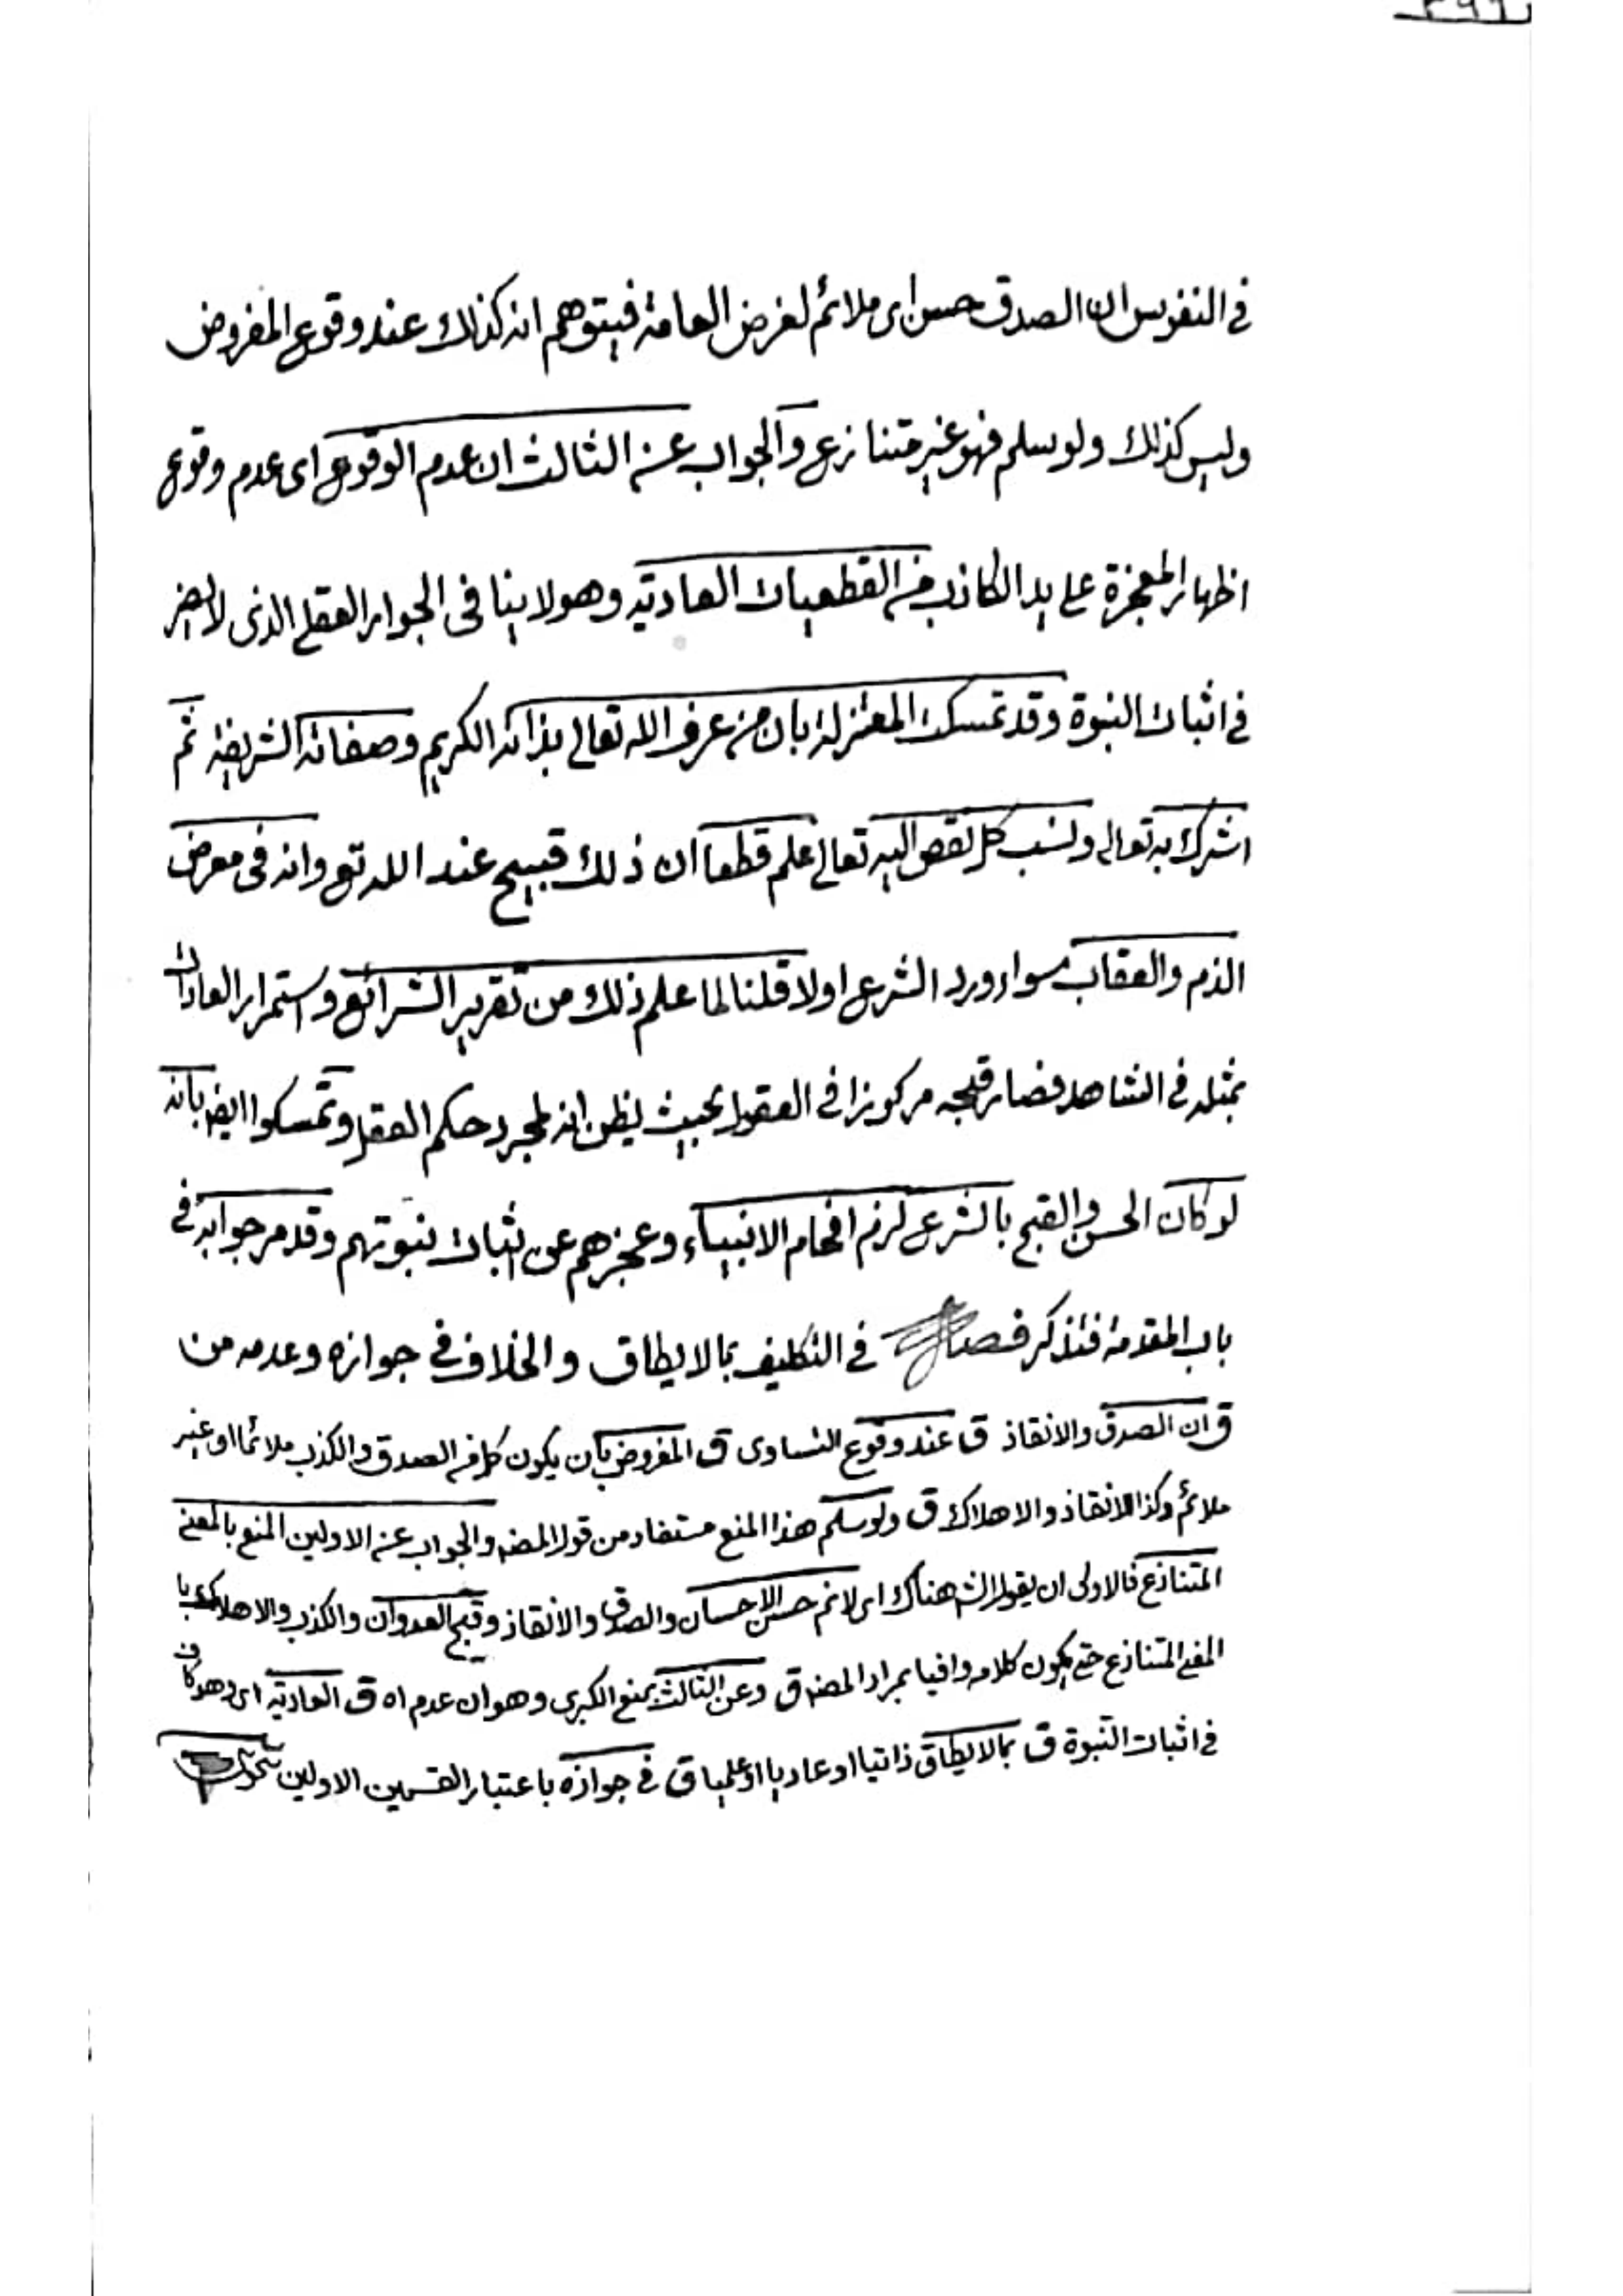 في النفوس ان الصدق حسن اى ملائم لغرض العامة فيتوهم انه كذلك عند وقوع المفروض
وليس كذلك ولو سلم فهو غير متنازع والجواب عن الثالث ان عدم الوقوع اى عدم وقوع
اظهار المعجزة على يد الكاذب من القطعيات العادية وهو لا ينافى الجواز العقلى الذى لا يضر
في اثبات النبوة وقد تمسكت المعتزلة بان من عرف الله تعالى بذاته الكريم وصفاته الشريفة ثم
اشرك به تعالى ونسب كل نقص اليه تعالى علم قطعا ان ذلك قبيح عند الله تع وانه فى معرض
الذم والعقاب سواء ورد الشرع او لا قلنا لما علم ذلك من تقرير الشرائع واستمرار العادات
بمثله فى الشاهد فصار قبحه مركوزا فى العقول بحيث يظن انه لمجرد حكم العقل وتمسكوا ايض بانه
لو كان الحسن والقبح بالشرع لزم افحام الانبياء وعجزهم عن اثبات نبوتهم وقد مر جوابه في
باب المقدمة فتذكر فصل في التكليف بما لا يطاق والخلاف في جوازه وعدمه من
ق ان الصدق والانقاذ ق عند وقوع التساوى ق المفروض بان يكون كل من الصدق والكذب ملائما او غير
ملائم وكذا الانقاذ والاهلاك ق ولو سلم هذا المنع مستفاد من قول المصنه والجواب عن الاولين المنع بالمعنى
المتنازع فالاولى ان يقول الش هناك اى لا نم حسن الاحسان والصدق والانقاذ وقبح العدوان والكذب والاهلاك با
المعنى المتنازع حتى يكون كلامه وافيا بمراد المصنه ق وعن الثالث بمنع الكبرى وهو ان عدم اه ق العادية اى وهو كاف
في اثبات النبوة ق بما لا يطاق ذاتيا او عاديا او علميا ق في جوازه باعتبار القسمين الاولين